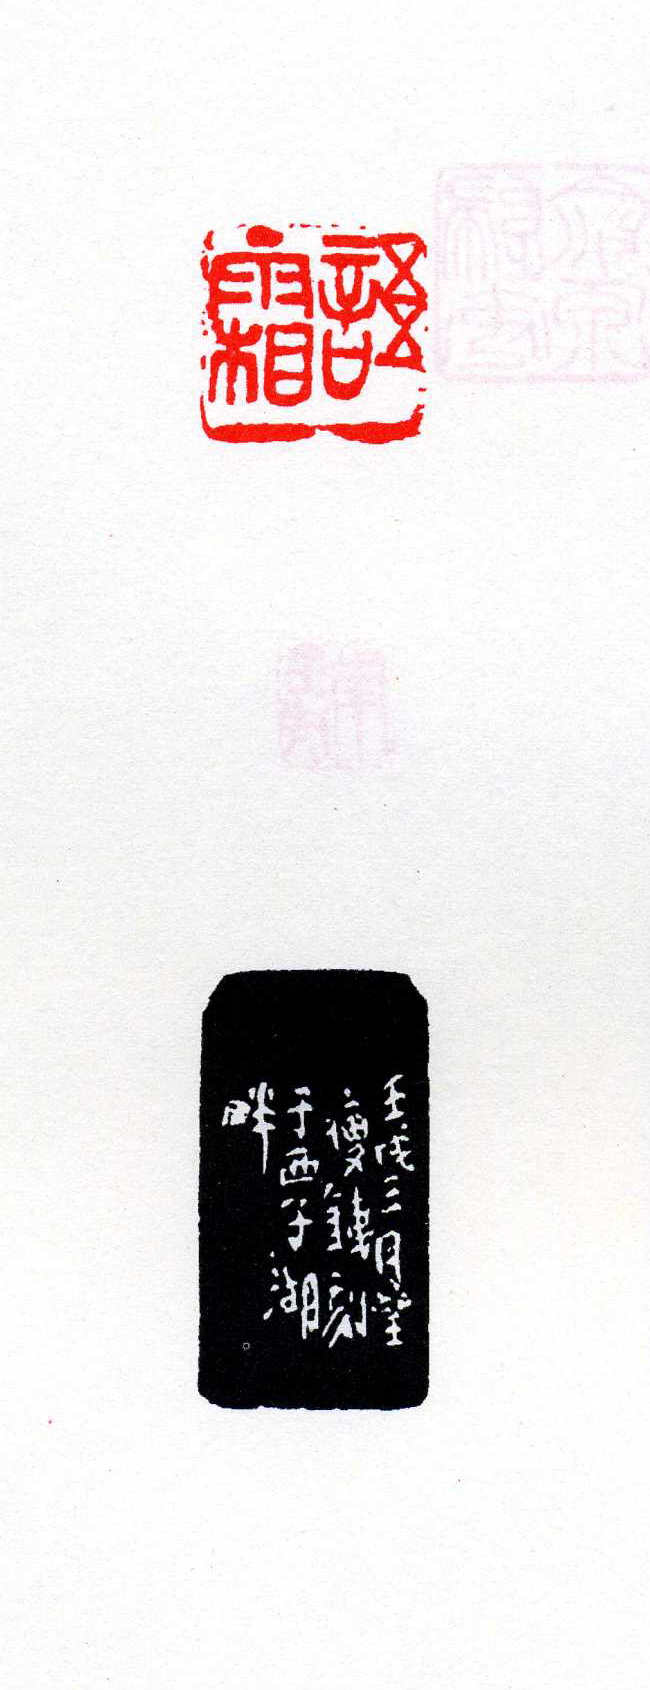 語霜
壬戌三月望
瘦鐵刻
于西子湖
畔